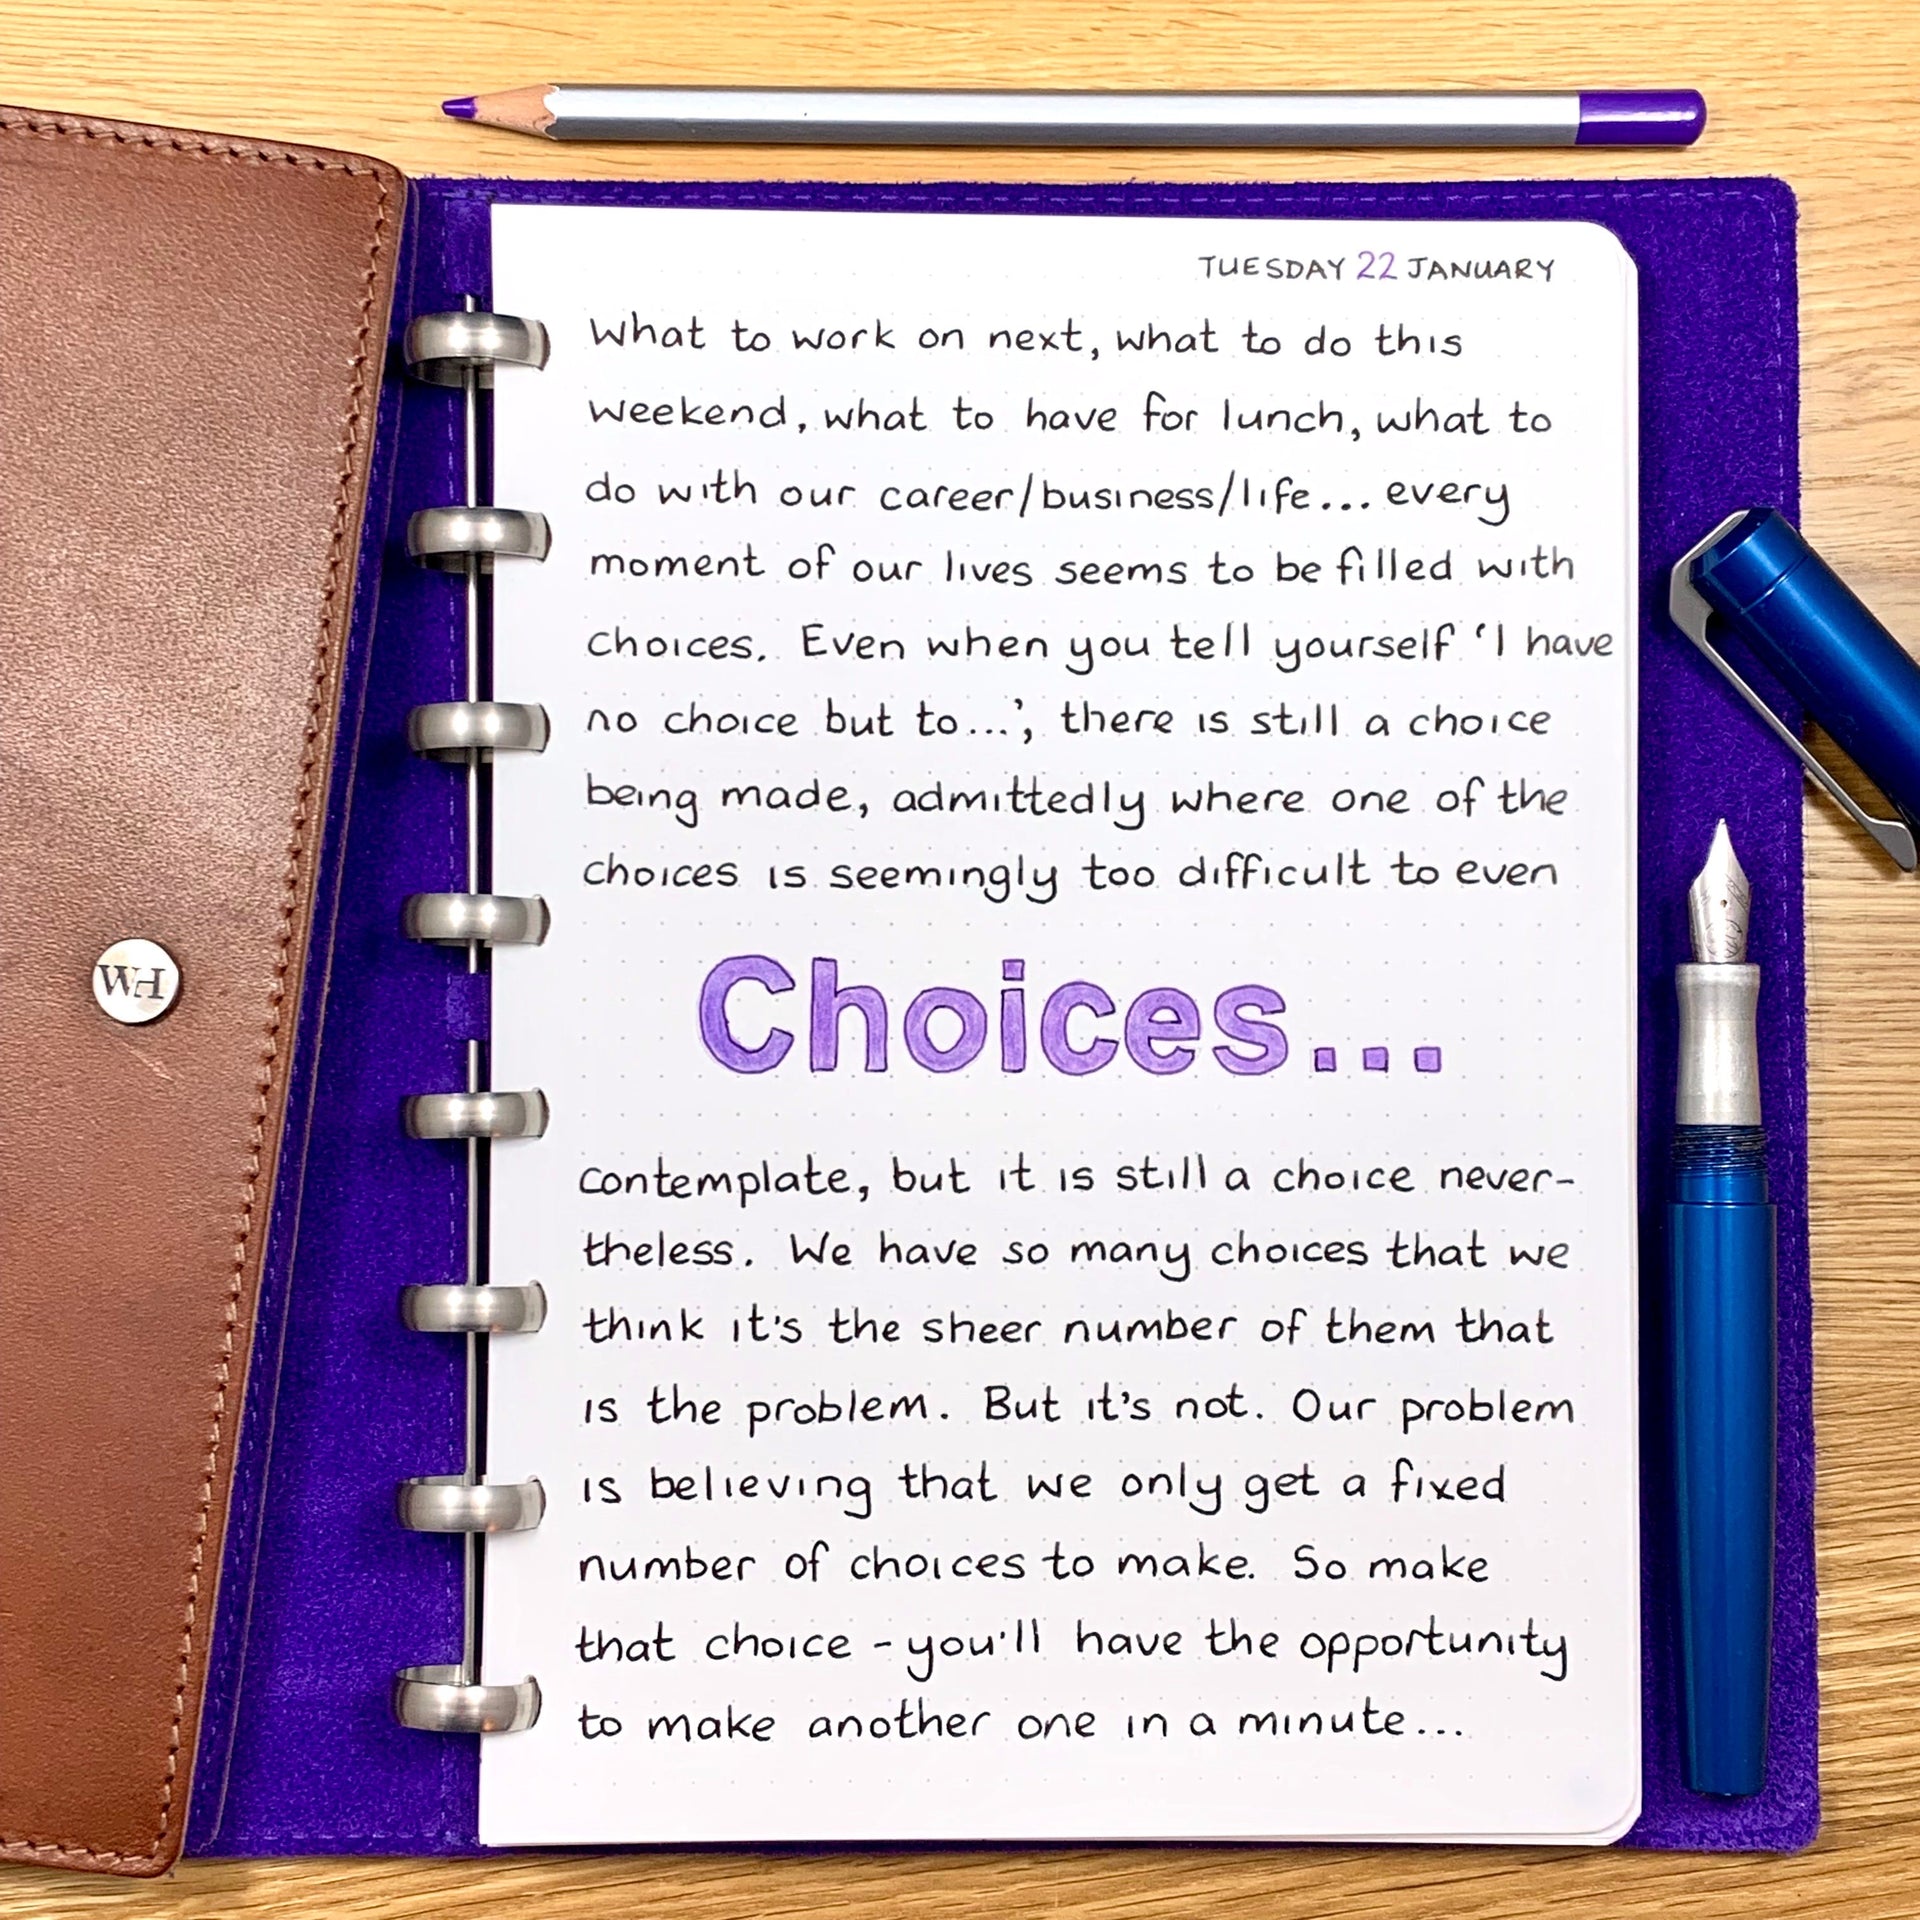 TUESDAY 22 JANUARY
What to work on next, what to do this
weekend, what to have for lunch, what to
do with our career/business/life... every
moment of our lives seems to be filled with
choices. Even when you tell yourself 'I have
no choice but to...', there is still a choice
being made, admittedly where one of the
choices is seemingly too difficult to even
Choices...
contemplate, but it is still a choice never-
theless. We have so many choices that we
think it's the sheer number of them that
is the problem. But it's not. Our problem
is believing that we only get a fixed
number of choices to make. So make
that choice - you'll have the opportunity
to make another one in a minute...
WH